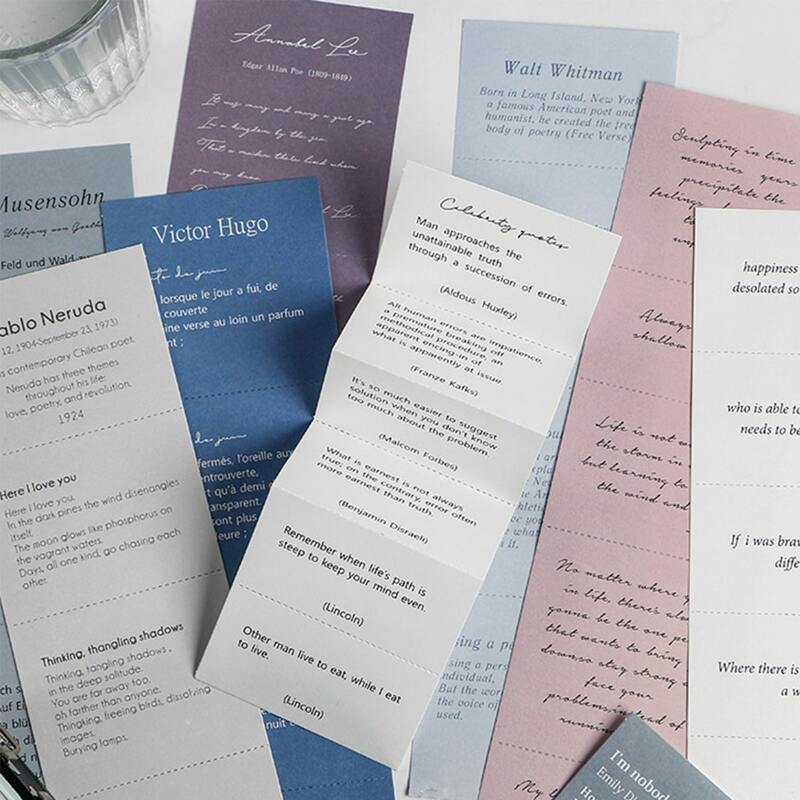 Annabel Lee
Edgar Allan Poe (1809-1849)
It was many and many a year ago,
In a kingdom by the sea,
That a maiden there lived whom
you may know
Lee
Walt Whitman
Born in Long Island, New York
a famous American poet and
humanist, he created the free
body of poetry (Free Verse)
Musensohn
Wolfgang von Goethe
Feld und Wald
Victor Hugo
de juin
lorsque le jour a fui, de
couverte
ine verse au loin un parfum
nt ;
de juin
fermés, l'oreille aux
entrouverte,
qu'à demi
transparent.
sont plus
ablo Neruda
12, 1904-September 23, 1973)
is contemporary Chilean poet.
Neruda has three themes
throughout his life:
love, poetry, and revolution.
1924
Here I love you
Here I love you.
In the dark pines the wind disenangles
itself.
The moon glows like phosphorus on
the vagrant waters.
Days, all one kind, go chasing each
other.
Thinking, thangling shadows
Thinking, tangling shadows ,
in the deep solitude.
You are far away too,
oh farther than anyone.
Thingking, freeing birds, dissolving
images.
Burying lamps.
Celebrity quotes
Man approaches the
unattainable truth
through a succession of errors.
(Aldous Huxley)
All human errors are impatience,
a premature breaking off
methodical procedure, an
apparent encing-in of
what is apparently at issue.
(Franze Kafks)
It's so much easier to suggest
solution when you don't know
too much about the problem.
(Malcom Forbes)
What is earnest is not always
true; on the contrary, error often
more earnest than truth.
(Benjamin Disraeli)
Remember when life's path is
steep to keep your mind even.
(Lincoln)
Other man live to eat, while I eat
to live.
(Lincoln)
sing a pe
sing a pers
individual,
But the wor
the voice of
used.
Sculpting in time
memories years
precipitate the
feelings
Always
shallow
Life is not w
the storm in
but learning to
the wind and
No matter where y
in life, there's al
gonna be the one pe
that wants to bring
downso stay strong a
face your
problemsinstead of
runnin
My l
happiness
desolated so
who is able to
needs to be
If i was brav
diffe
Where there is
a w
I'm nobod
Emily Di